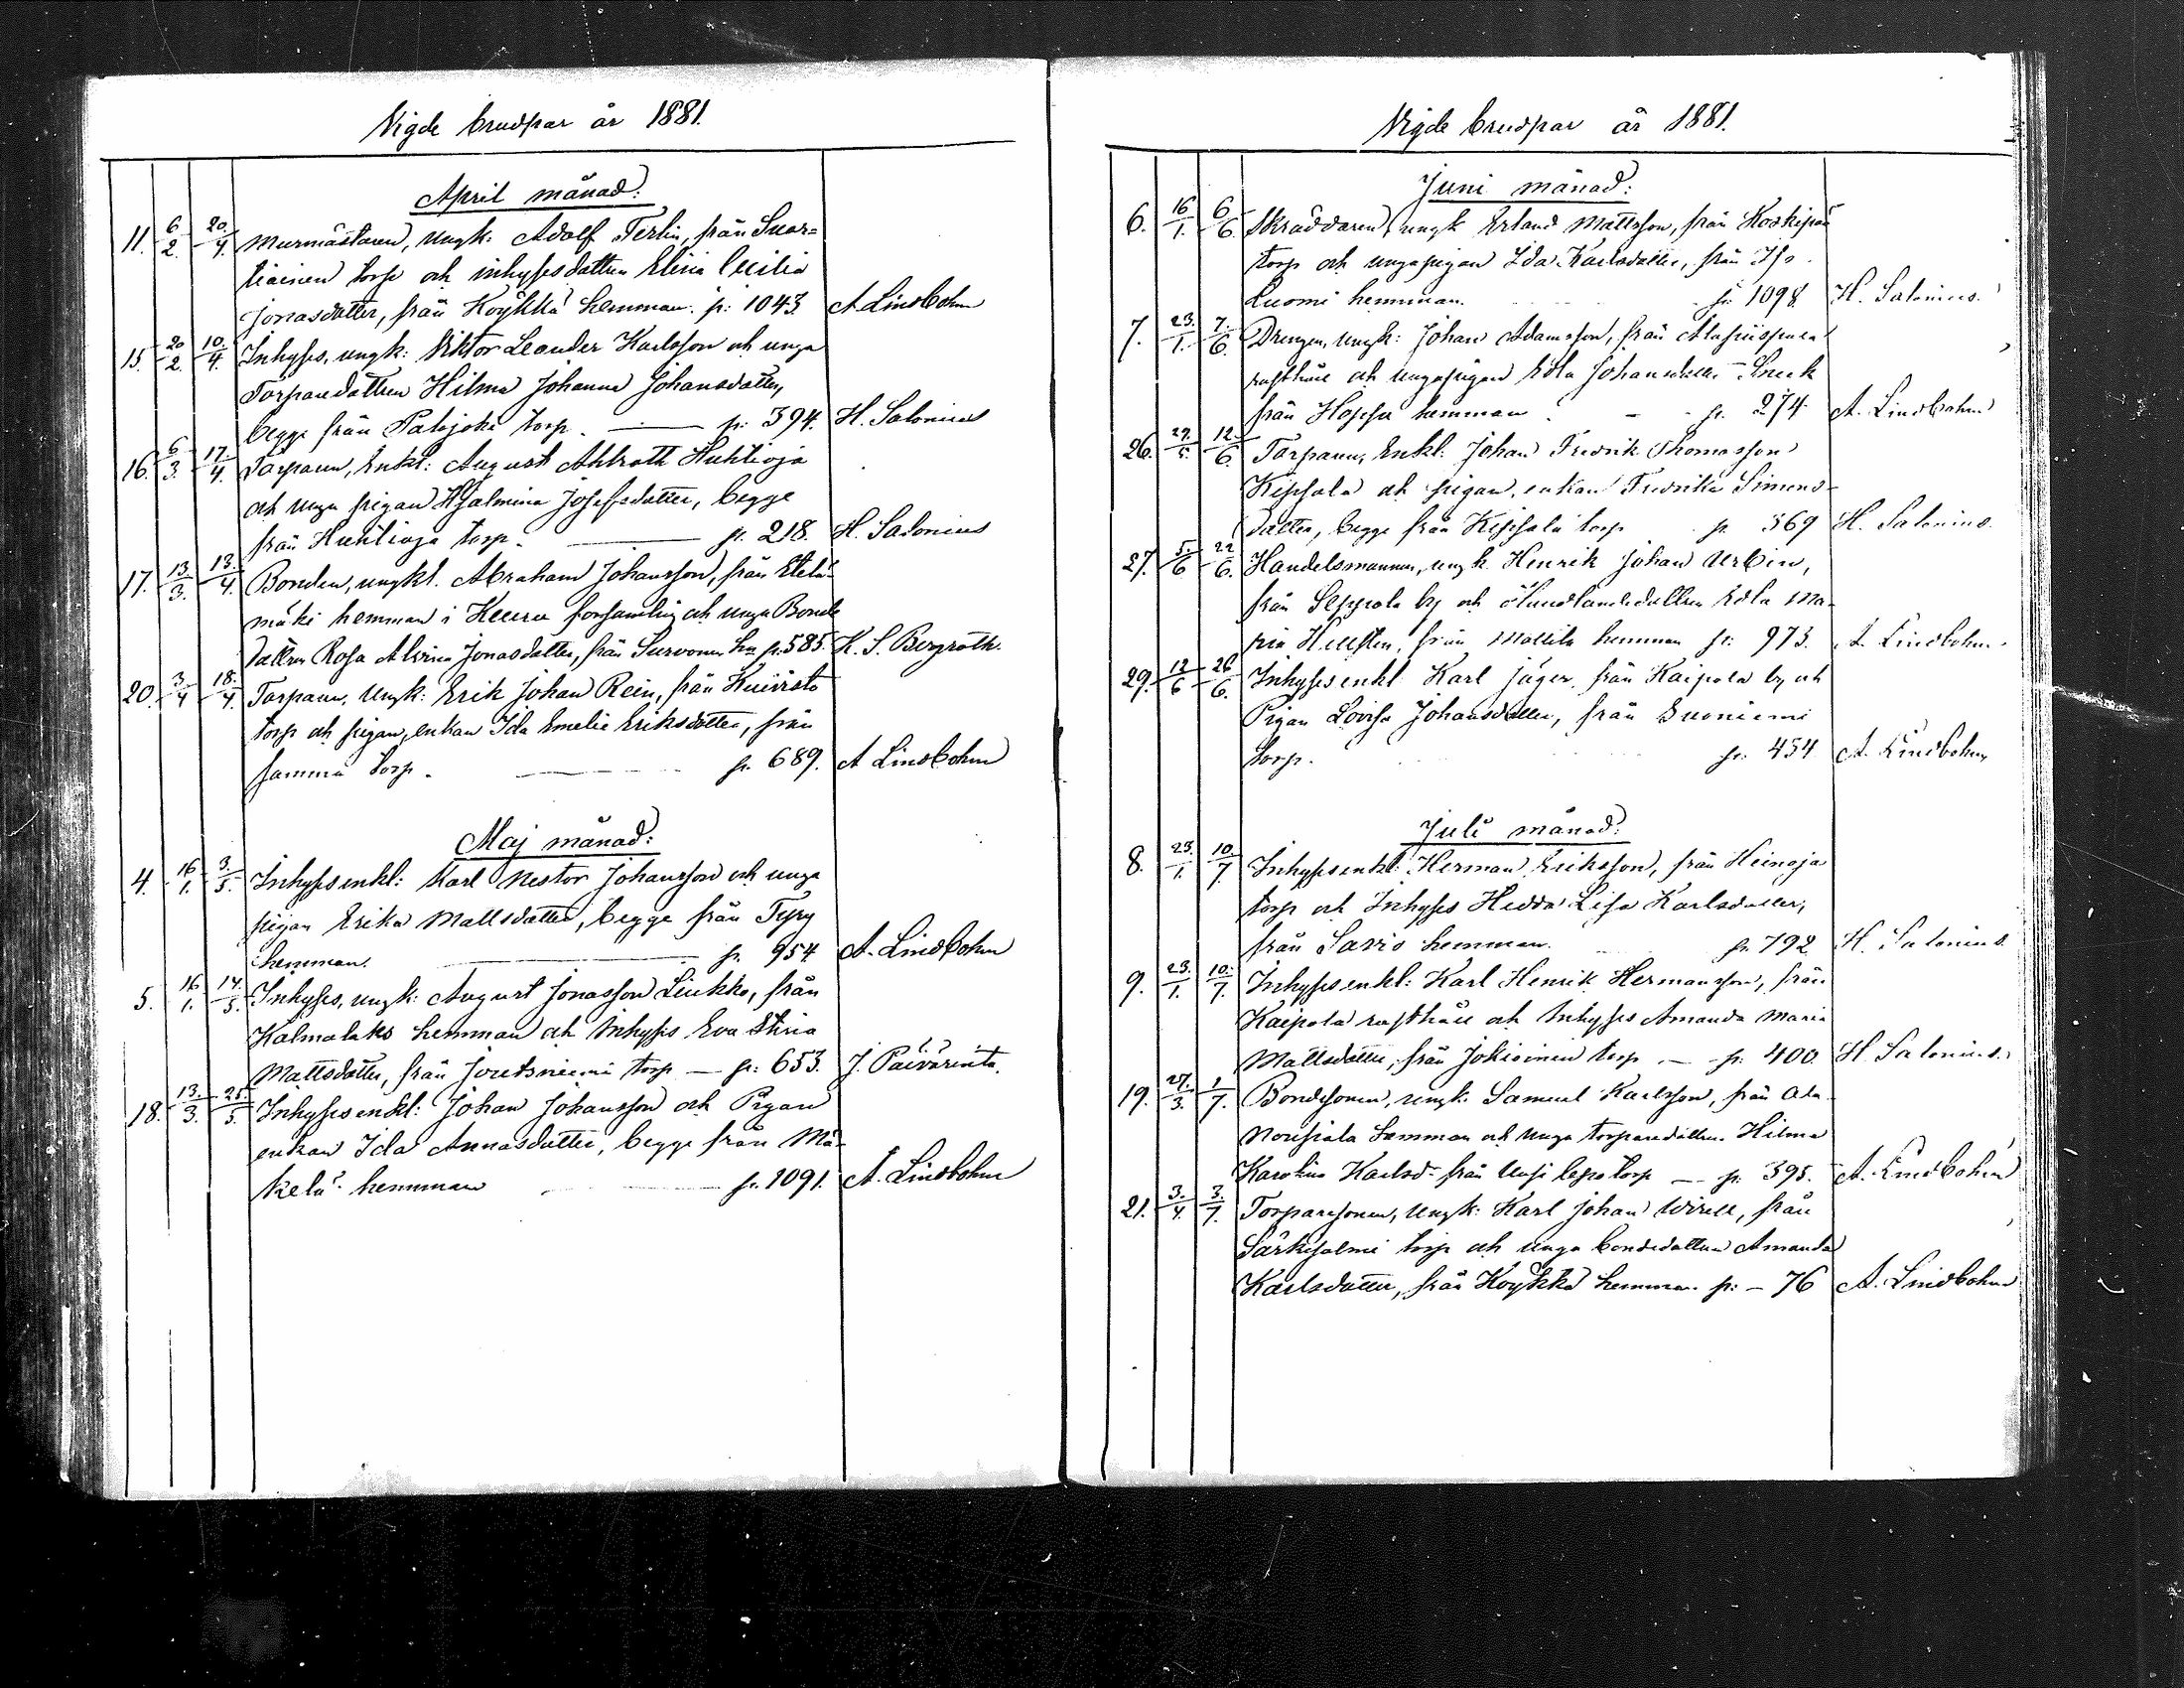 Vigde brudpar år 1881.
April månad:
11. 6/2. 20/4. Murmästaren, Ungk: Adolf Terlin, från Suar=
tiainen torp och inhyses dottren Elina Cecilia
Jonasdotter, från Köykkä hemman. p: 1043 A Lindbohm
15. 20/2. 10./4. Inhyses, ungk: Viktor Leander Karlsson och unga
Torparedottren Hilma Johanna Johansdotter,
begge från Palojoki torp. — p: 394. H. Salonius
16. 6/3. 17./4. Torparen, Enkl: August Ahlroth Huhtioja
och unga pigan Hjalmina Josefsdotter, begge
från Huhtioja torp. — p. 218. H. Salonius
17. 13/3. 13./4. Bonden, ungkl. Abraham Johansson, från Etelä-
mäki hemman i Keuru församling och unga Bonde
dottren Rosa Alvina Jonasdotter, från Survonen hn p. 585. K. S. Bergroth.
20. 3/4 18./4 Torparen, Ungk: Erik Johan Rein, från Kuivisto
torp och pigan, enkan Ida Emelie Eriksdotter, från
samma torp. — p. 689. A Lindbohm
Maj månad:
4. 16/1. 3/5. Inhyses enkl: Karl Nestor Johansson och unga
pigan Erika Mattsdotter, begge från Tyry
hemman. — p. 954 A. Lindbohm
5. 16/1. 14./5. Inhyses, ungk: August Jonasson Liukko, från
Kalmalaks hemman och Inhyses Eva Stina
Mattsdotter, från Joutsniemi torp — p: 653. J. Päivärinta.
18. 13./3. 25./5. Inhyses enkl: Johan Johansson och Pigan
enkan Ida Annasdotter, begge från Mä-
kelä hemman — p. 1091. A. Lindbohm
Vigde brudpar år 1881.
Juni månad:
6. 16/1. 6/6. Skräddaren, ungk Erland Mattsson, från Koskipää
torp och unga pigan Ida Karlsdotter, från Iso
Luomi hemman. p: 1098 H. Salonius.
7. 23./1. 7./6. Drengen, Ungk: Johan Adamsson, från Alapiispala
rusthåll och unga pigan Edla Johansdotter Sneck
från Hoppu hemman. — p. 274 A. Lindbohm
26. 29./5. 12./6. Torparen, Enkl: Johan Fredrik Thomasson
Kippola och pigan, enkan Fredrika Simons-
dotter, begge från Kippola torp p. 369 H. Salonius.
27. 5./6 22/6. Handelsmannen, ungk. Henrik Johan Urbin,
från Seppola by och Ölundlandsdottren Edla Ma-
ria Hellsten, från Mattila hemman p. 973. A. Lindbohm.
29. 12/6 26/6. Inhyses enkl Karl Jäger, från Kaipola by och
Pigan Lovisa Johansdotter, från Suoniemi
torp. p. 454 A. Lindbohm
Juli månad:
8. 23./1. 10./7. Inhyses enkl: Herman Eriksson, från Heinoja
torp och Inhyses Hedda Lisa Karlsdotter,
från Sarvis hemman. p. 792 H. Salonius.
9. 23./1. 10./7. Inhyses enkl: Karl Henrik Hermansson, från
Kaipola rusthåll och Inhyses Amanda Maria
Mattsdotter, från Jokioinen torp — p. 400. H. Salonius.
19. 27./3. 1/7. Bondesonen, ungk: Samuel Karlsson, från Ala
Nousiala hemman och Unga torparedottren Hilma
Karolina Karlsd. från Uusi lepo torp — p. 395. A. Lindbohm
21. 3./4. 3./7. Torparesonen, Ungk: Karl Johan Wirell, från
Särkisalmi torp och unga bondedottren Amanda
Karlsdotter, från Köykkä hemman p: — 76 A. Lindbohm